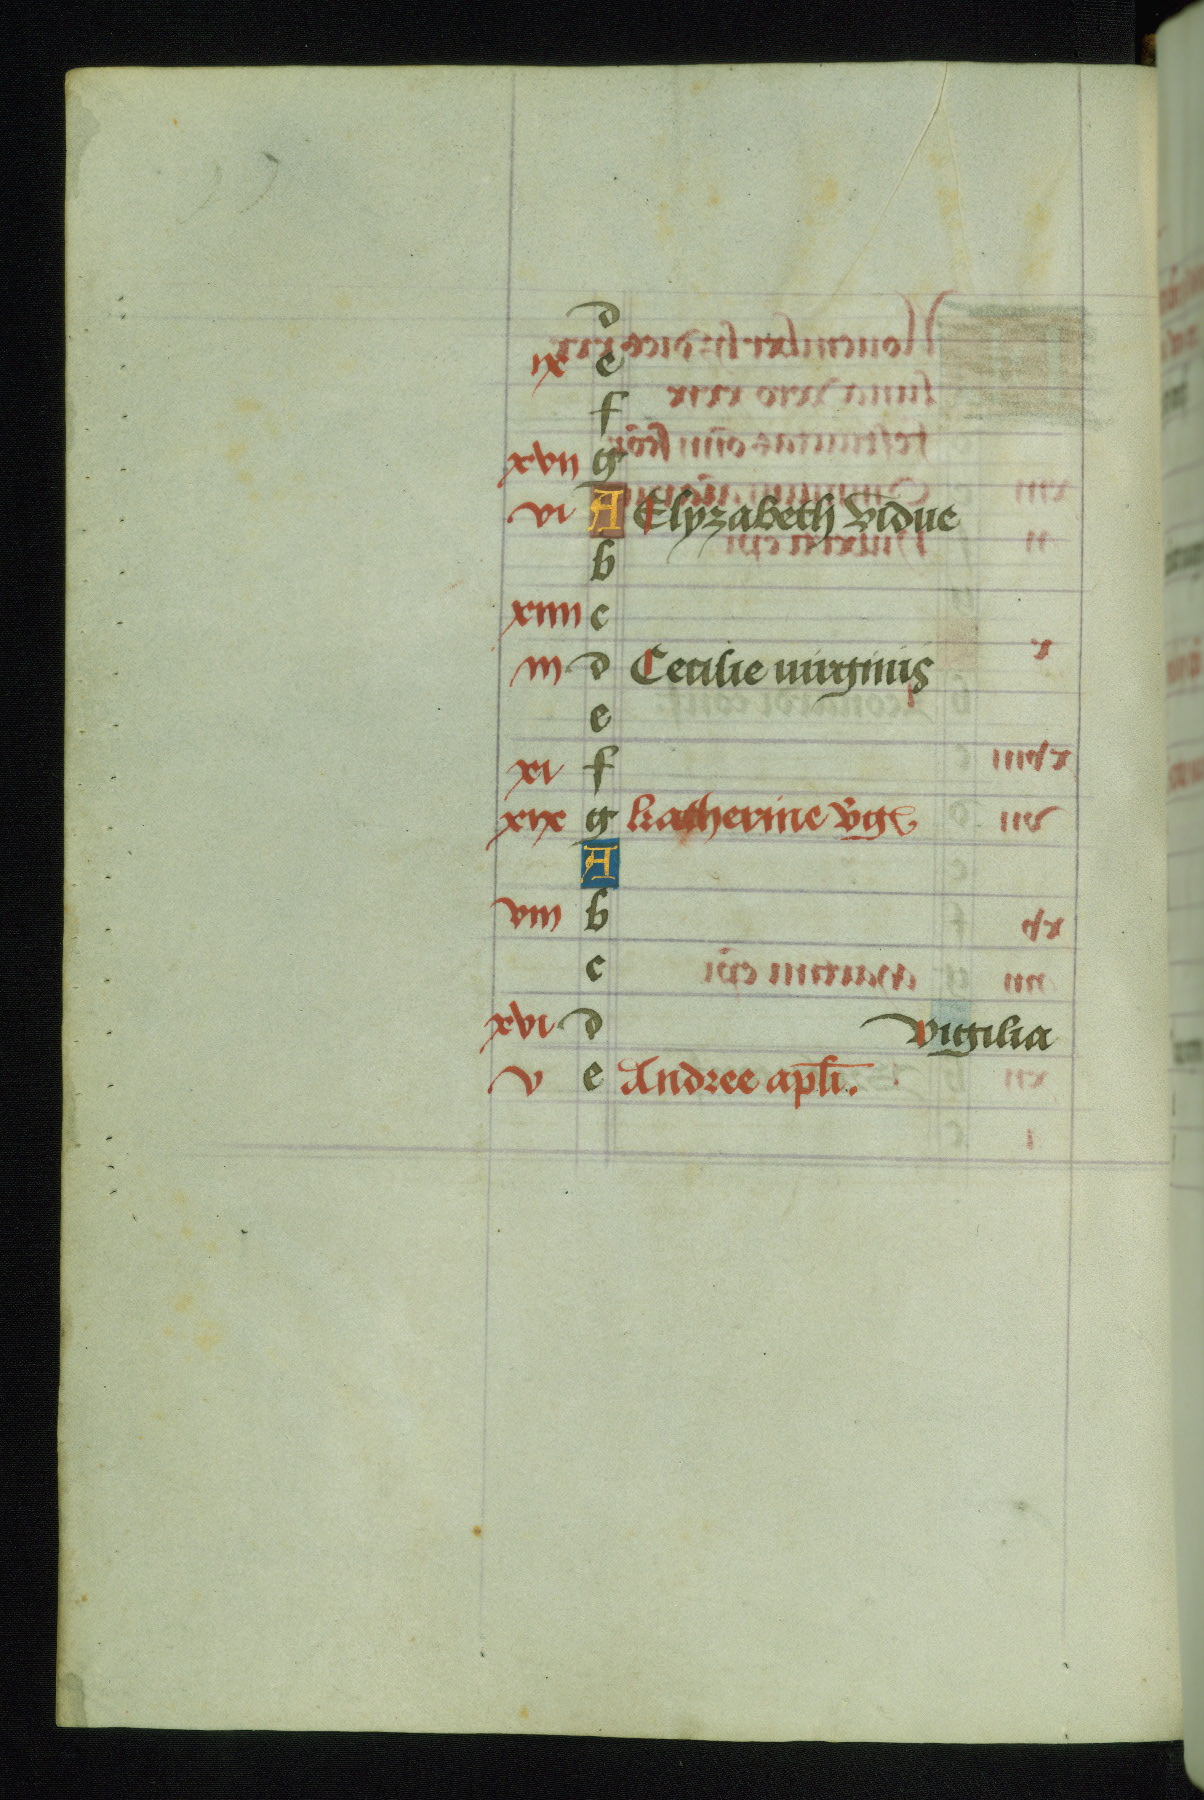 d
ix e
f
xvii g
vi A Elyzabeth vidue
b
xiiii c
iii d Cecilie uirginis
e
xi f
xix g katherine v̄gˢ
A
viii b
c
xvi d vigilia
v e Andree apl̄i.